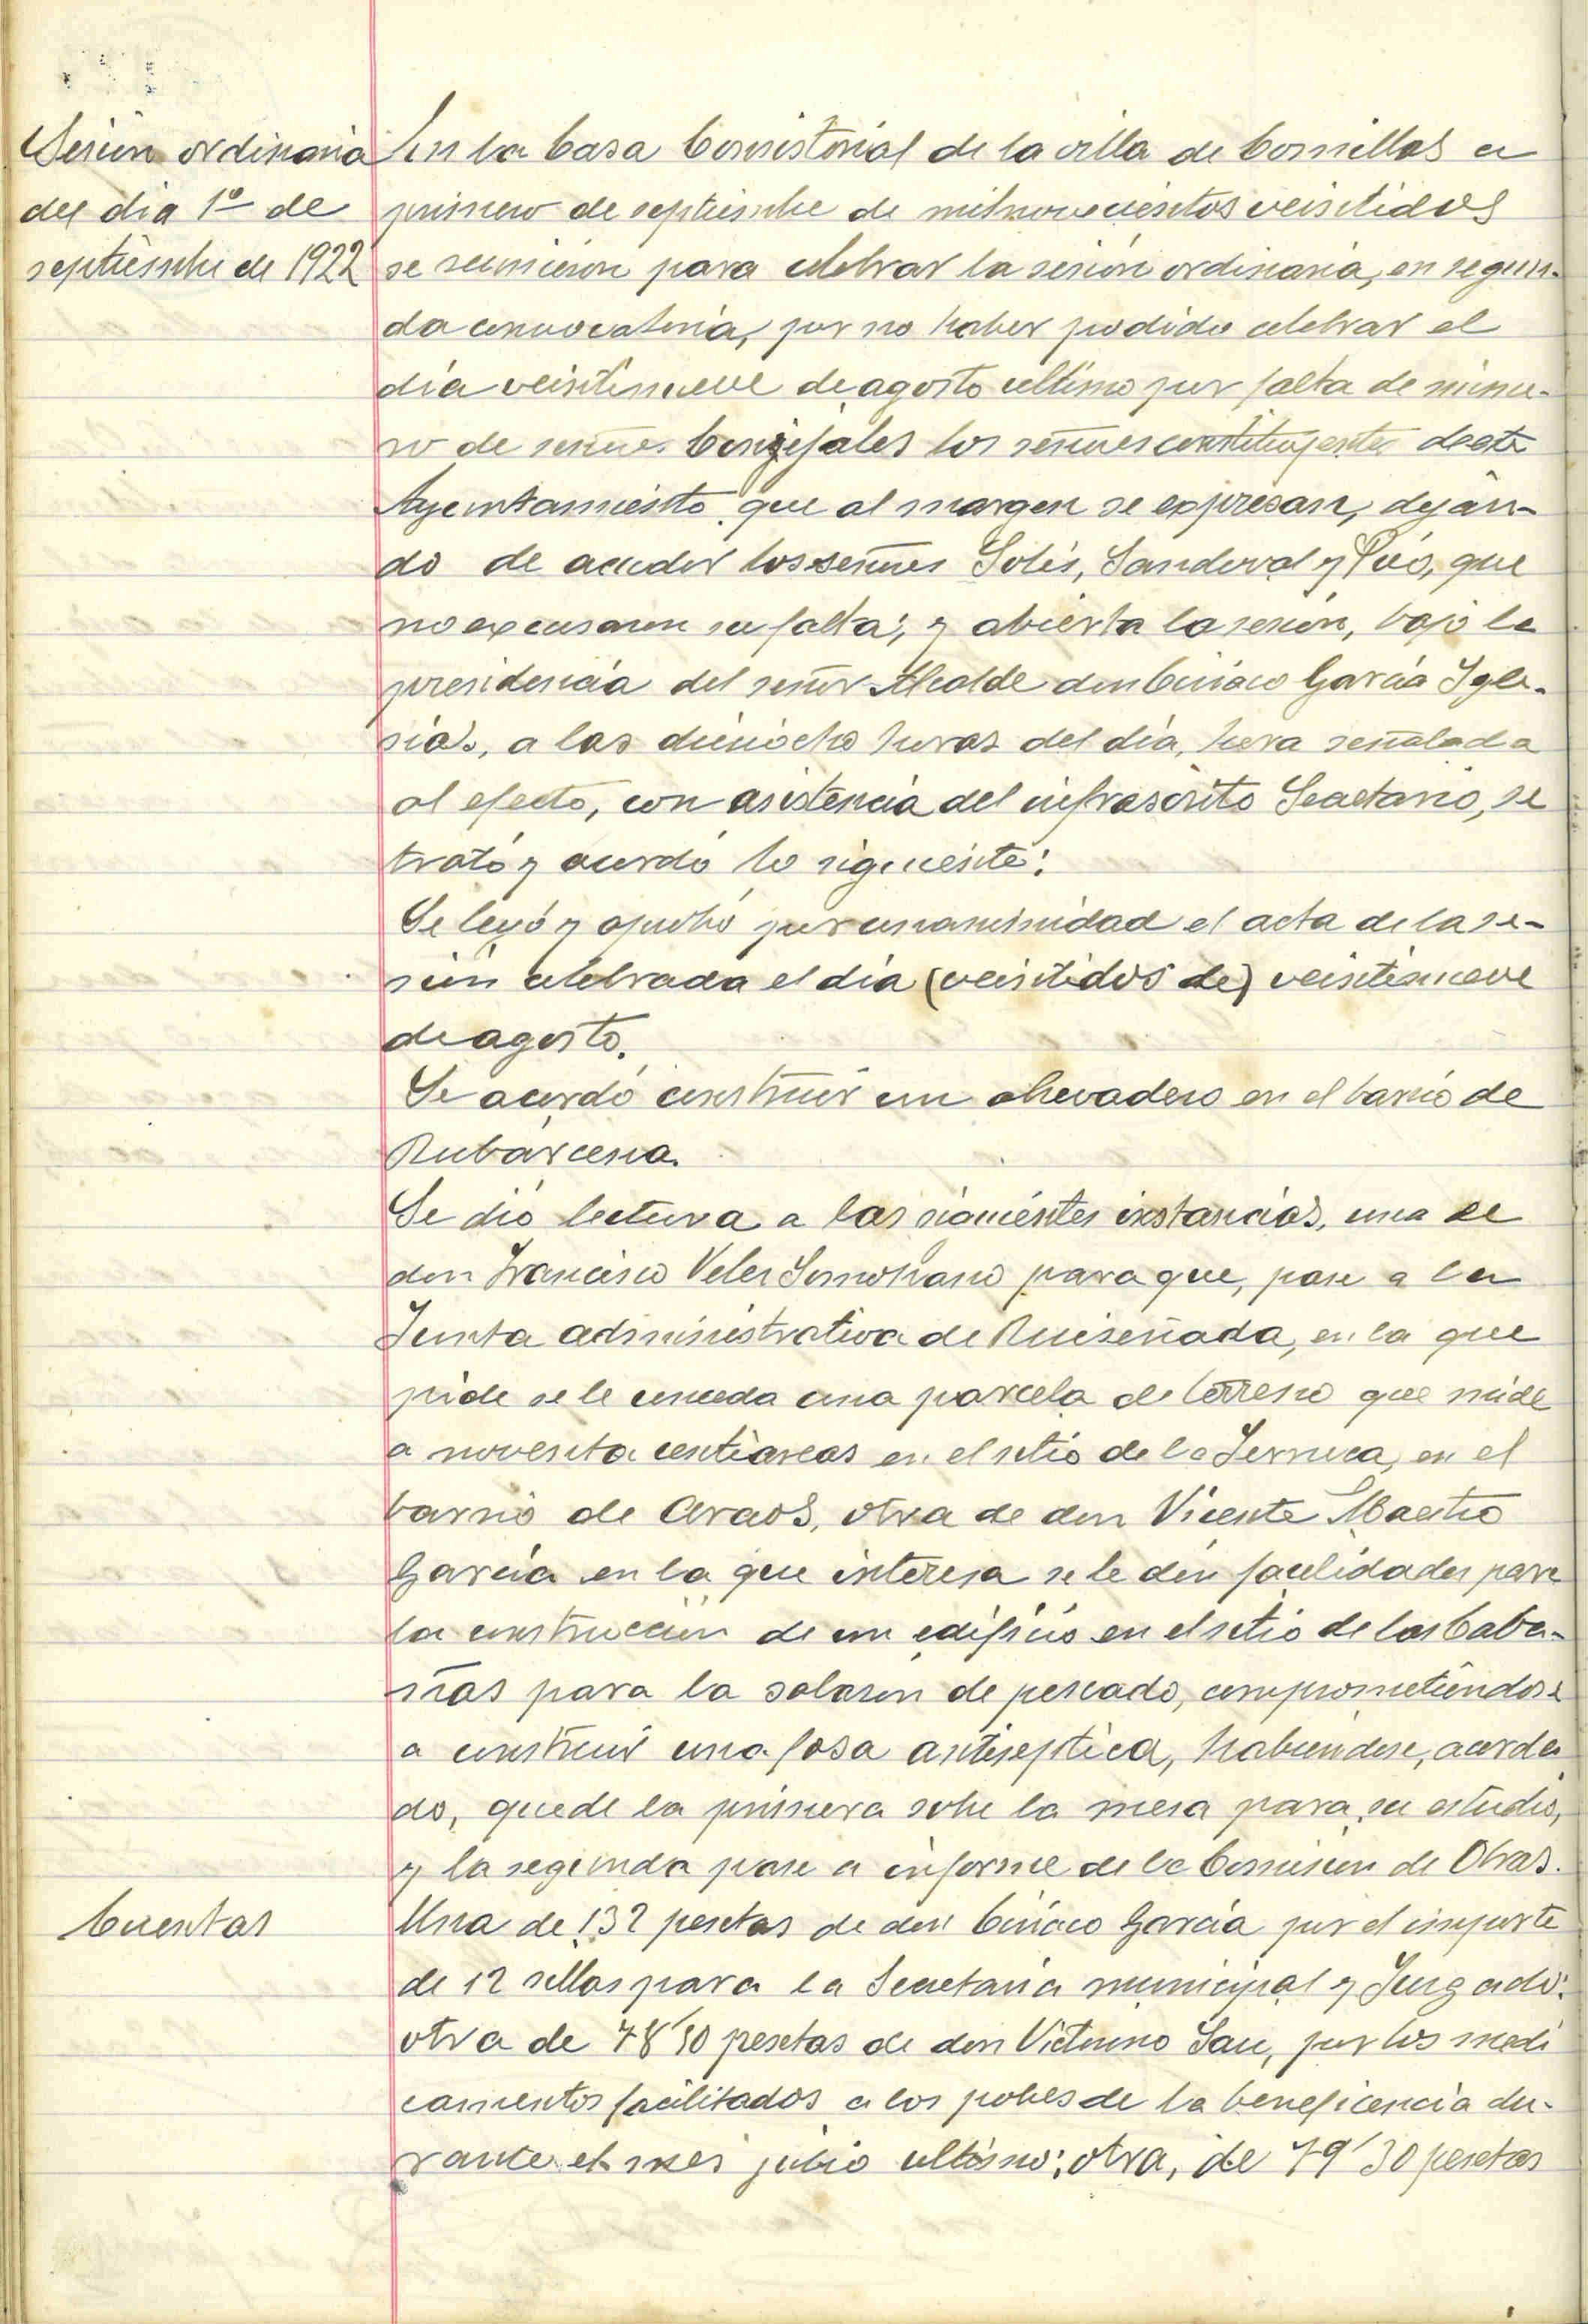 Sesión ordinaria
del dia 1º de
septiembre de 1922
En la Casa Consistorial de la villa de Comillas a
primero de septiembre de mil novecientos veintidos
se reunieron para celebrar la sesión ordinaria, en segun-
da convocatoria, por no haber podido celebrar el
dia veintinueve de agosto ultimo por falta de nume-
ro de señores Concejales los señores constituyentes de este
Ayuntamiento que al margen se expresan, dejan-
do de acudir los señores Solis, Sandoval y Pío, que
no excusaron su falta; y abierta la sesión, bajo la
presidencia del señor Alcalde don Ciriaco García Igle-
sias, a las dieciocho horas del dia, hora señalada
al efecto, con asistencia del infrascrito Secretario, se
trató y acordó lo siguiente:
Se leyó y aprobó por unanimidad el acta de la se-
sión celebrada el dia (veintidos de) veintinueve
de agosto.
Se acordó construir un abrevadero en el barrio de
Rubárcena.
Se dió lectura a las siguientes instancias, una de
don Francisco Velez Somohano para que, pase a la
Junta administrativa de Ruiseñada, en la que
pide se le conceda una parcela de terreno que mide
a noventa centiareas en el sitio de la en el
barrio de Araos, otra de don Vicente Maestro
García en la que interesa se le den facilidades para
la construcción de un edificio en el sitio de las Caba-
ñas para la salazón de pescado, comprometiendose
a construir una fosa antiseptica, habiendose, acorda
do, quede la primera sobre la mesa para su estudio,
y la segunda pase a informe de la Comisión de Obras.
Cuentas
Una de 132 pesetas de don Ciriaco García por el importe
de 12 sellos para la Secretaria municipal y Juzgado;
otra de 78'90 pesetas de don Victorino San, por los medi
camentos facilitados a los pobres de la beneficencia du-
rante el mes julio ultimo; otra, de 79'30 pesetas